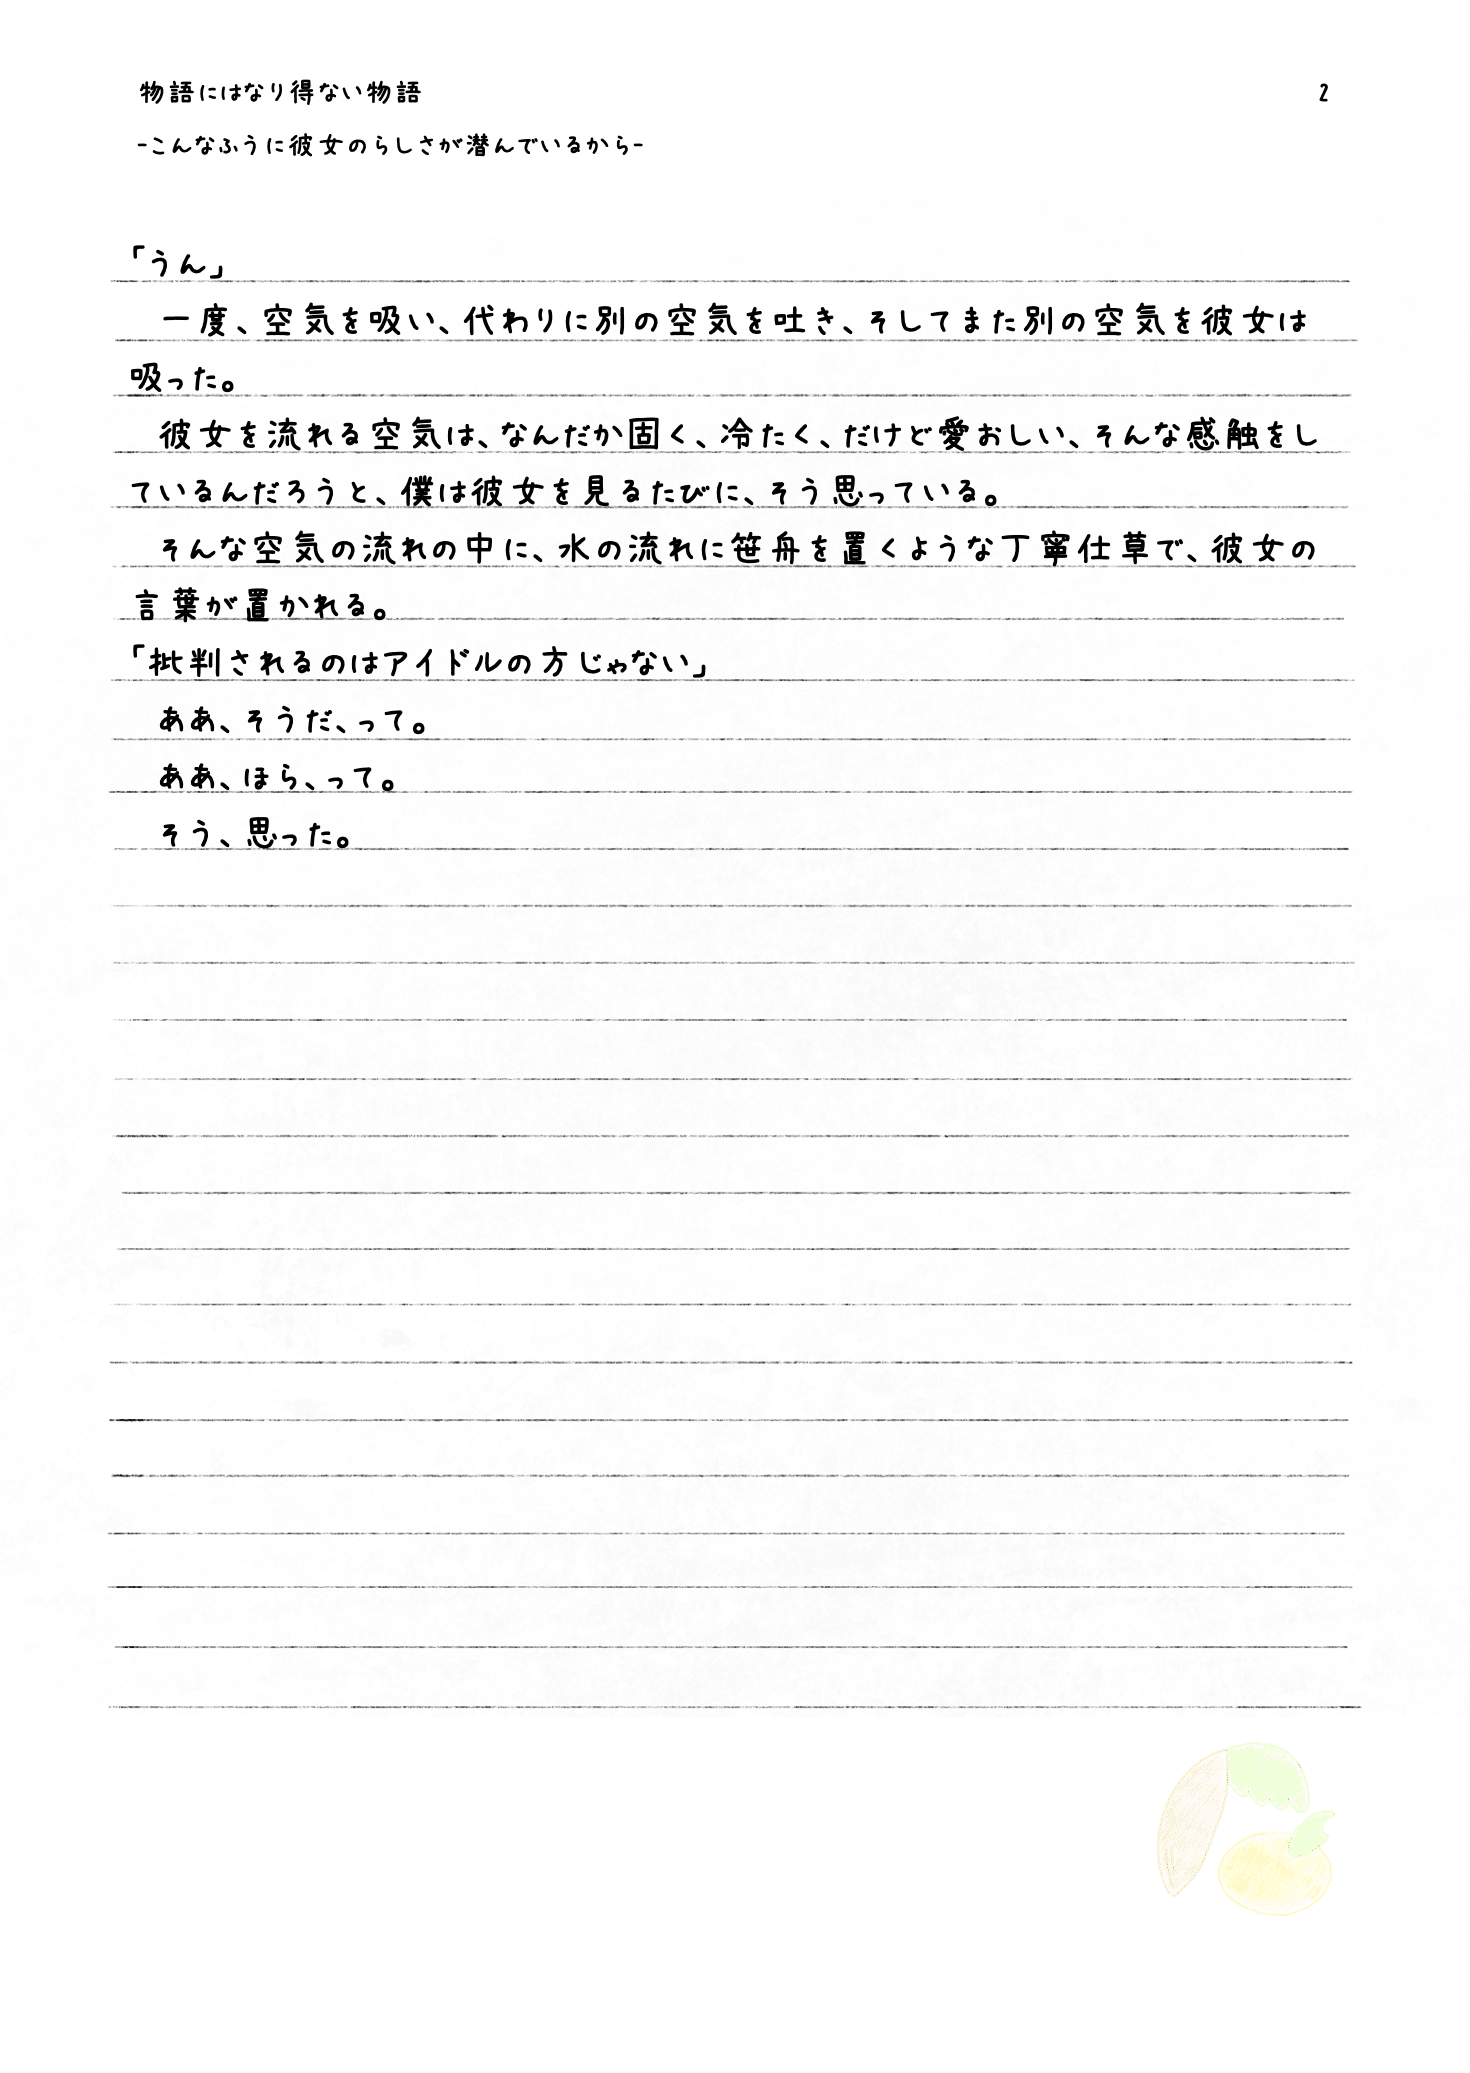 物語にはなり得ない物語
2
-こんなふうに彼女のらしさが潜んでいるから-
「うん」
　一度、空気を吸い、代わりに別の空気を吐き、そしてまた別の空気を彼女は
吸った。
　彼女を流れる空気は、なんだか固く、冷たく、だけど愛おしい、そんな感触をし
ているんだろうと、僕は彼女を見るたびに、そう思っている。
　そんな空気の流れの中に、水の流れに笹舟を置くような丁寧仕草で、彼女の
言葉が置かれる。
「批判されるのはアイドルの方じゃない」
　ああ、そうだ、って。
　ああ、ほら、って。
　そう、思った。